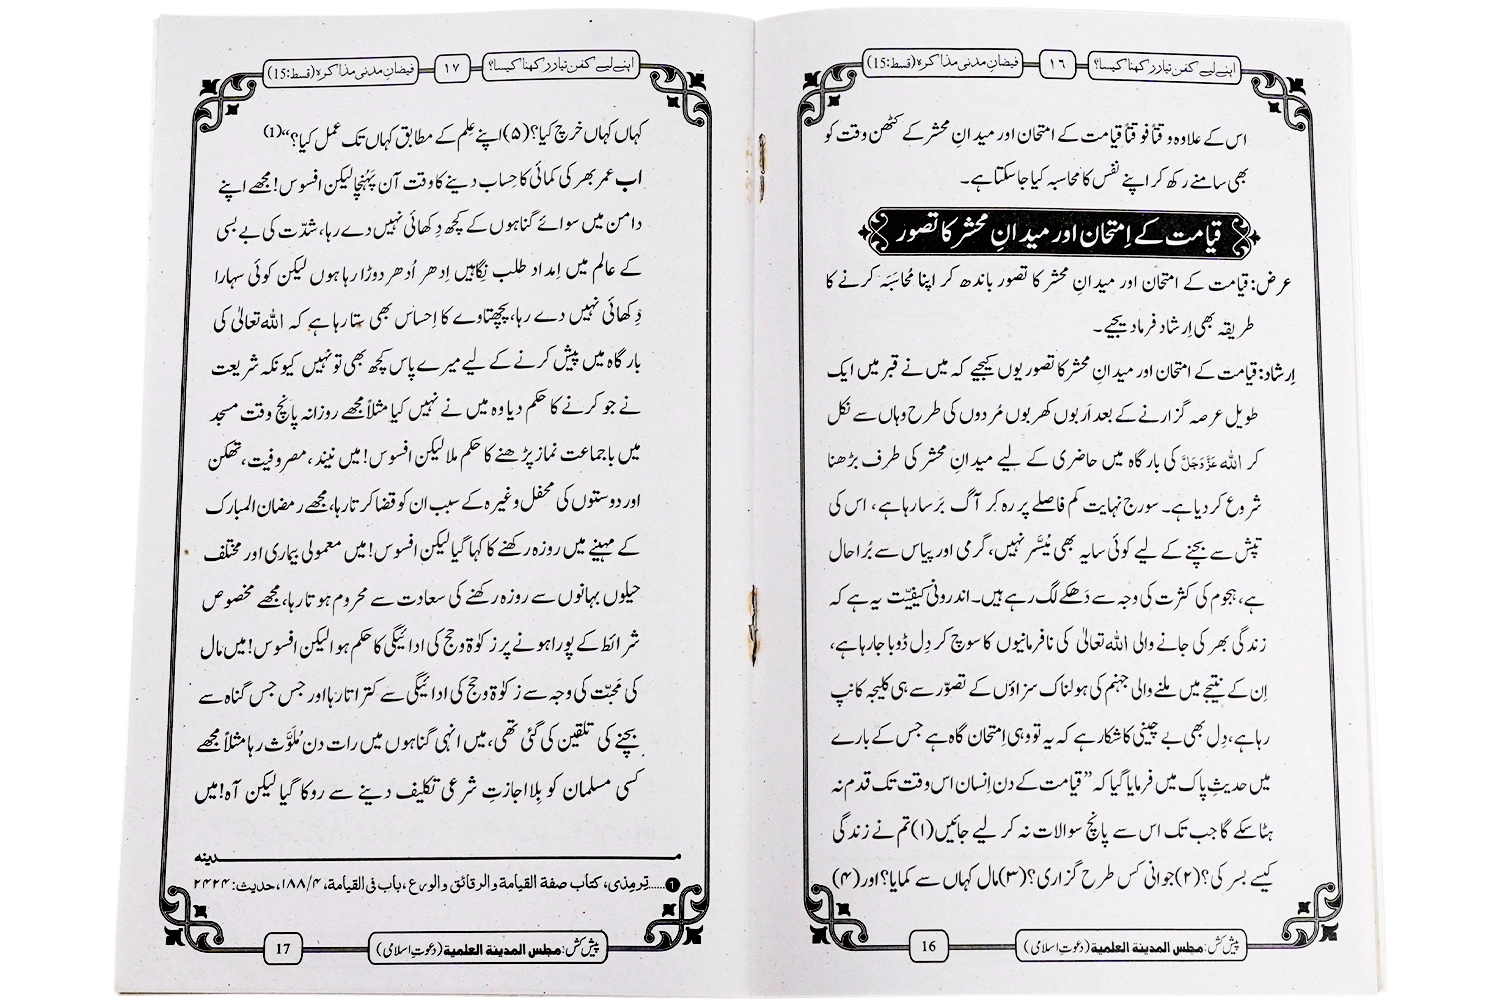 اپنے لیے کفن تیار رکھنا کیسا؟ ١٦ فیضانِ مدنی مذاکرہ (قسط:15)
اس کے علاوہ وقتاً فوقتاً قیامت کے امتحان اور میدانِ محشر کے کٹھن وقت کو
بھی سامنے رکھ کر اپنے نفس کا محاسبہ کیا جا سکتا ہے۔
قیامت کے اِمتحان اور میدانِ محشر کا تصور
عرض: قیامت کے امتحان اور میدانِ محشر کا تصور باندھ کر اپنا مُحاسَبَہ کرنے کا
طریقہ بھی اِرشاد فرما دیجیے۔
اِرشاد: قیامت کے امتحان اور میدانِ محشر کا تصور یوں کیجیے کہ میں نے قبر میں ایک
طویل عرصہ گزارنے کے بعد اَربوں کھربوں مُردوں کی طرح وہاں سے نکل
کر اللہ عَزَّوَجَلَّ کی بارگاہ میں حاضری کے لیے میدانِ محشر کی طرف بڑھنا
شروع کر دیا ہے۔ سورج نہایت کم فاصلے پر رہ کر آگ بَرسا رہا ہے، اس کی
تپش سے بچنے کے لیے کوئی سایہ بھی مُیَسَّر نہیں، گرمی اور پیاس سے بُرا حال
ہے، ہجوم کی کثرت کی وجہ سے دَھکے لگ رہے ہیں۔ اندرونی کیفِیَّت یہ ہے کہ
زندگی بھر کی جانے والی اللہ تعالیٰ کی نافرمانیوں کا سوچ کر دِل ڈوبا جا رہا ہے،
اِن کے نتیجے میں ملنے والی جہنم کی ہولناک سزاؤں کے تصوّر سے ہی کلیجہ کانپ
رہا ہے، دِل بھی بے چینی کا شکار ہے کہ یہ تو وہی اِمتحان گاہ ہے جس کے بارے
میں حدیثِ پاک میں فرمایا گیا کہ ”قیامت کے دن اِنسان اس وقت تک قدم نہ
ہٹا سکے گا جب تک اس سے پانچ سوالات نہ کر لیے جائیں (۱) تم نے زندگی
کیسے بسر کی؟ (۲) جوانی کس طرح گزاری؟ (۳) مال کہاں سے کمایا؟ اور (۴)
پیش کش: مجلس المدینة العلمیة (دعوتِ اسلامی) 16
اپنے لیے کفن تیار رکھنا کیسا؟ ١٧ فیضانِ مدنی مذاکرہ (قسط:15)
کہاں کہاں خرچ کیا؟ (۵) اپنے عِلم کے مطابق کہاں تک عمل کیا؟“ (1)
اب عمر بھر کی کمائی کا حِساب دینے کا وقت آن پَہُنچا لیکن افسوس! مجھے اپنے
دامن میں سوائے گناہوں کے کچھ دِکھائی نہیں دے رہا، شدّت کی بے بسی
کے عالم میں اِمداد طلب نِگاہیں اِدھر اُدھر دوڑا رہا ہوں لیکن کوئی سہارا
دِکھائی نہیں دے رہا، پچھتاوے کا اِحساس بھی ستا رہا ہے کہ اللہ تعالیٰ کی
بارگاہ میں پیش کرنے کے لیے میرے پاس کچھ بھی تو نہیں کیونکہ شریعت
نے جو کرنے کا حکم دیا وہ میں نے نہیں کیا مثلاً مجھے روزانہ پانچ وقت مسجد
میں باجماعت نماز پڑھنے کا حکم ملا لیکن افسوس! میں نیند، مصروفیت، تھکن
اور دوستوں کی محفل وغیرہ کے سبب ان کو قضا کرتا رہا، مجھے رمضان المبارک
کے مہینے میں روزہ رکھنے کا کہا گیا لیکن افسوس! میں معمولی بیماری اور مختلف
حیلوں بہانوں سے روزہ رکھنے کی سعادت سے محروم ہوتا رہا، مجھے مخصوص
شرائط کے پورا ہونے پر زکوٰۃ و حج کی ادائیگی کا حکم ہوا لیکن افسوس! میں مال
کی مَحبَّت کی وجہ سے زکوٰۃ و حج کی ادائیگی سے کتراتا رہا اور جس جس گناہ سے
بچنے کی تلقین کی گئی تھی، میں انہی گناہوں میں رات دن مُلَوَّث رہا مثلاً مجھے
کسی مسلمان کو بِلا اجازتِ شرعی تکلیف دینے سے روکا گیا لیکن آہ! میں
مـــــدینہ
❶ .....تِرمِذی، کتاب صفة القیامة والرقائق والورع، باب فی القیامة، ۴/۱۸۸، حدیث: ۲۴۲۴
پیش کش: مجلس المدینة العلمیة (دعوتِ اسلامی) 17